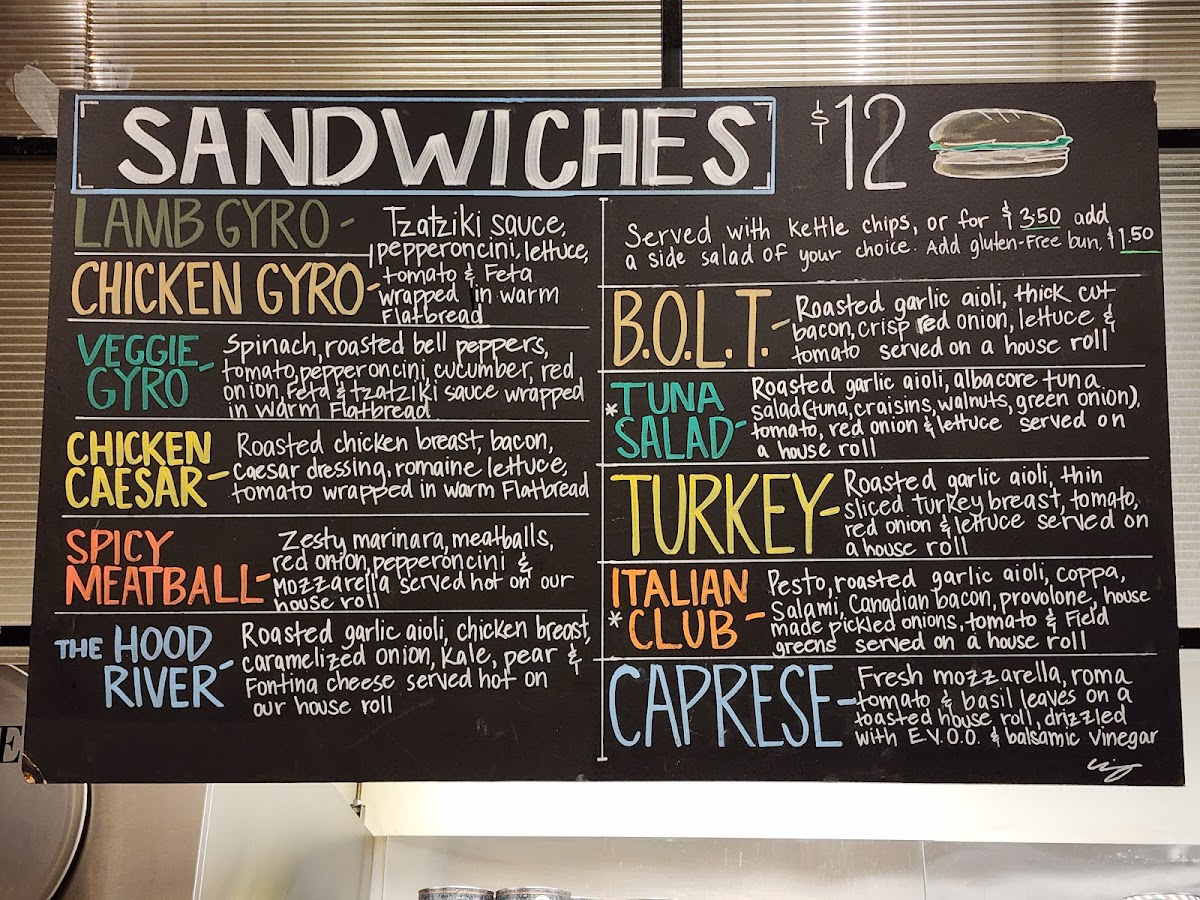 SANDWICHES
$12
LAMB GYRO -
CHICKEN GYRO -
Tzatziki sauce,
pepperoncini, lettuce,
tomato & Feta
wrapped in warm
Flatbread
VEGGIE
GYRO -
Spinach, roasted bell peppers,
tomato, pepperoncini, cucumber, red
onion, Feta & tzatziki sauce wrapped
in warm Flatbread
CHICKEN
CAESAR -
Roasted chicken breast, bacon,
caesar dressing, romaine lettuce,
tomato wrapped in warm Flatbread
SPICY
MEATBALL -
Zesty marinara, meatballs,
red onion, pepperoncini &
Mozzarella served hot on our
house roll
THE HOOD
RIVER -
Roasted garlic aioli, chicken breast,
caramelized onion, kale, pear &
Fontina cheese served hot on
our house roll
Served with kettle chips, or for $3.50 add
a side salad of your choice. Add gluten-free bun, $1.50
B.O.L.T. -
Roasted garlic aioli, thick cut
bacon, crisp red onion, lettuce &
tomato served on a house roll
* TUNA
SALAD -
Roasted garlic aioli, albacore tuna
salad (tuna, craisins, walnuts, green onion),
tomato, red onion & lettuce served on
a house roll
TURKEY -
Roasted garlic aioli, thin
sliced turkey breast, tomato,
red onion & lettuce served on
a house roll
ITALIAN
* CLUB -
Pesto, roasted garlic aioli, coppa,
Salami, Canadian bacon, provolone, house
made pickled onions, tomato & Field
greens served on a house roll
CAPRESE -
Fresh mozzarella, roma
tomato & basil leaves on a
toasted house roll, drizzled
with E.V.O.O. & balsamic vinegar
E